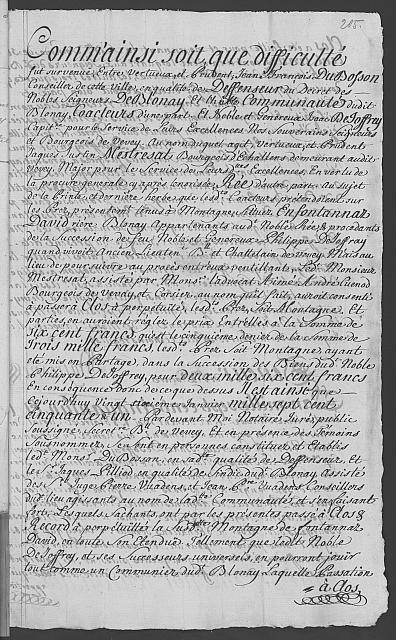 215.
Comm'ainsi soit que difficulté
fut survenüe Entre Vertueux et Prudent, Jean François DuBosson
Conseiller de cette ville, en qualité de Deffenseur du Decret des
Nobles Seigneurs DeBlonay, Et la Communauté dudit
Blonay, Coacteurs d'une part, Et Noble et Généreux Isaac DeJoffrey
Capit.e pour le Service de Leurs Excellences Nos Souverains Seigneurs
et Bourgeois de Vevey, Au nom duquel agit, Vertueux, et Prudent
Jaques Justin Mestresat, Bourgeois d'Echallens demeurant audit
Vevey, Major pour le Service des Leurs d.tes Excellences, En vertu de
la procure generale cy après considerée Rée d'autre part, Au sujet
de la Prinse, et derniere herbe que lesd.ts Coacteurs prétendoient sur
les Prez, presentement tenus à Montagne, situez En fontannaz
David, riere Blonay, Appartenants aud.t Noble Rée, & procedants
de la Succession de feu Noble et Généreux Philippe DeJoffrey
quand vivoit Ancien Lieuten.t B.al et Chatelain de Vevey, Mais au
lieu de poursuivre au procés entr'eux pentillant, Led.t Monsieur
Mestresat, assisté par Mons.r l'advocat Aimé André Cuenod
Bourgeois de Vevay et Corsier, au nom qu'il fait, auroit consenti
à passer à Clos à perpétuité, lesd.ts Prez, soit Montagne, Et
parties, auroient réglez le prix Entr'elles à la Somme de
Six cent francs, qui est le cinquième, denier de la somme de
Trois mille francs, lesd.ts Prez, soit Montagne, ayant
été mis en Partage, dans la Succession des Biens dud.t Noble
Philippe DeJoffrey, pour deux mille six cent francs
En conséquence donc de ce que dessus Il est ainsi que
Cejourd'huy Vingt sixième Janvier, mille sept cent
cinquante & un. Pardevant Moi Notaire Juré public
soussigné, Secret.re B.al de Vevey, Et en présence des Témoins
Sousnommez, se sont en personnes constituez et établis
Led.t Mons.r DuBosson, en sad.te qualité de Deffenseur, Et
le S.r Jaques Pilliod en qualité de Sindic dud.t Blonay, assisté
des S.rs Juge Pierre Viladens, et Jean Viladens, Conseillers
dud.t lieu, agissants au nom de lad.te Communauté, et s'en faisant
forts, Lesquels Sachants, ont par les présentes passé à Clos &
Record à perpétuité la susd.te Montagne de fontannaz
David, en toute Son Etendue, Tellement que led.it Noble
DeJoffrey, et ses Successeurs universels, en pourront jouïr
tout comme un Communier dud.t Blonay, Laquelle Passation
= à Clos